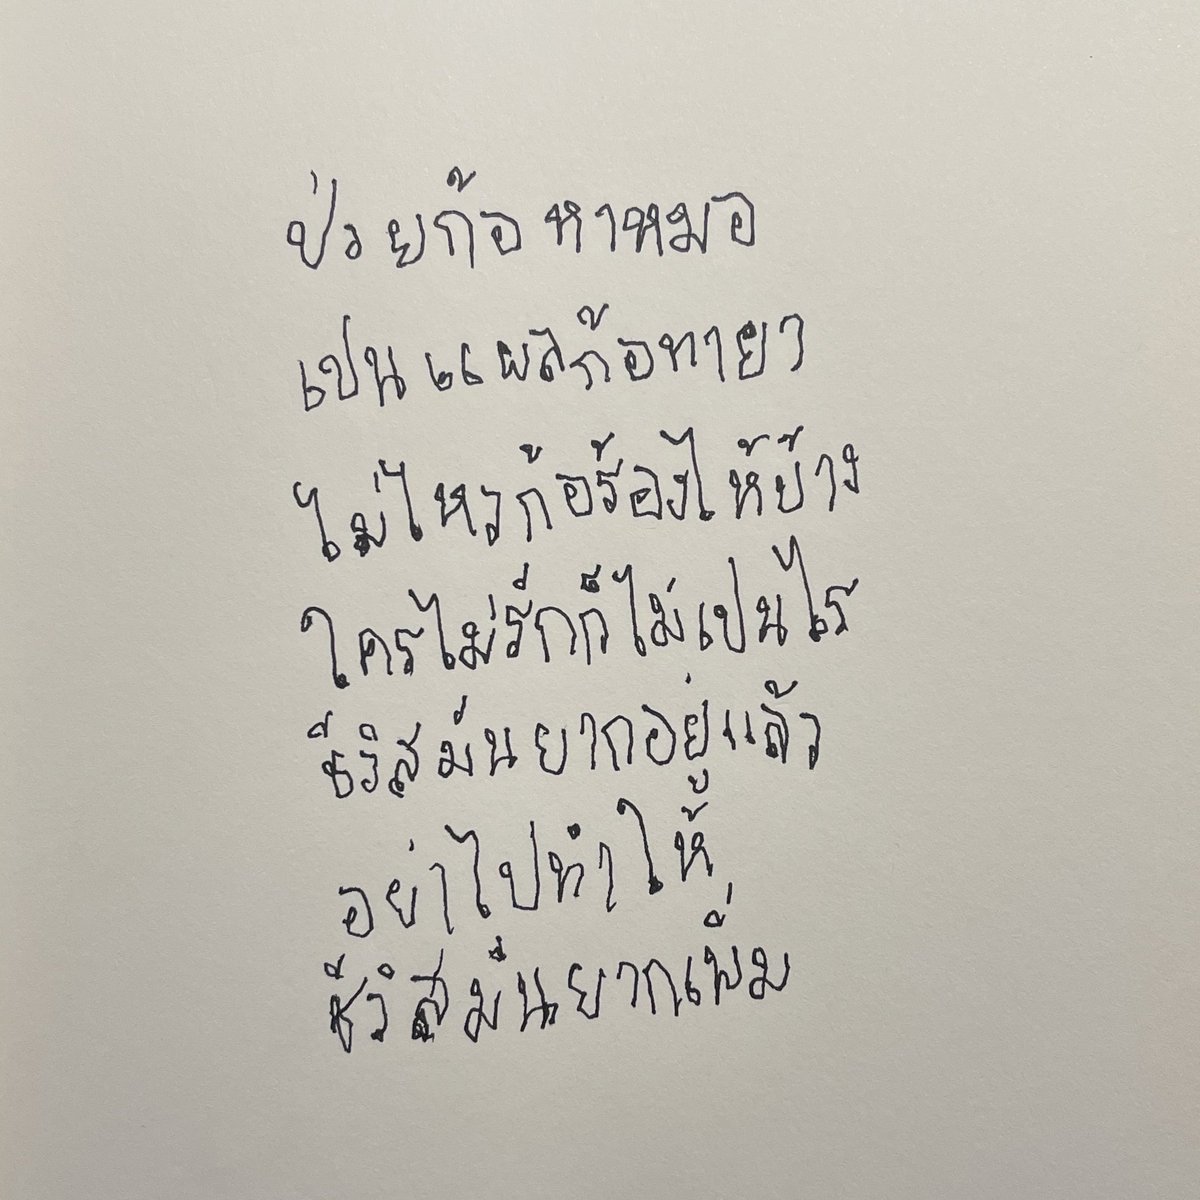 ป่วยก้อหาหมอ
เป็นแผลก้อทายา
ไม่ไหวก้อร้องไห้บ้าง
ใครไม่รักก็ไม่เป็นไร
ชีวิตมันยากอยู่แล้ว
อย่าไปทำให้
ชีวิตมันยากเพิ่ม